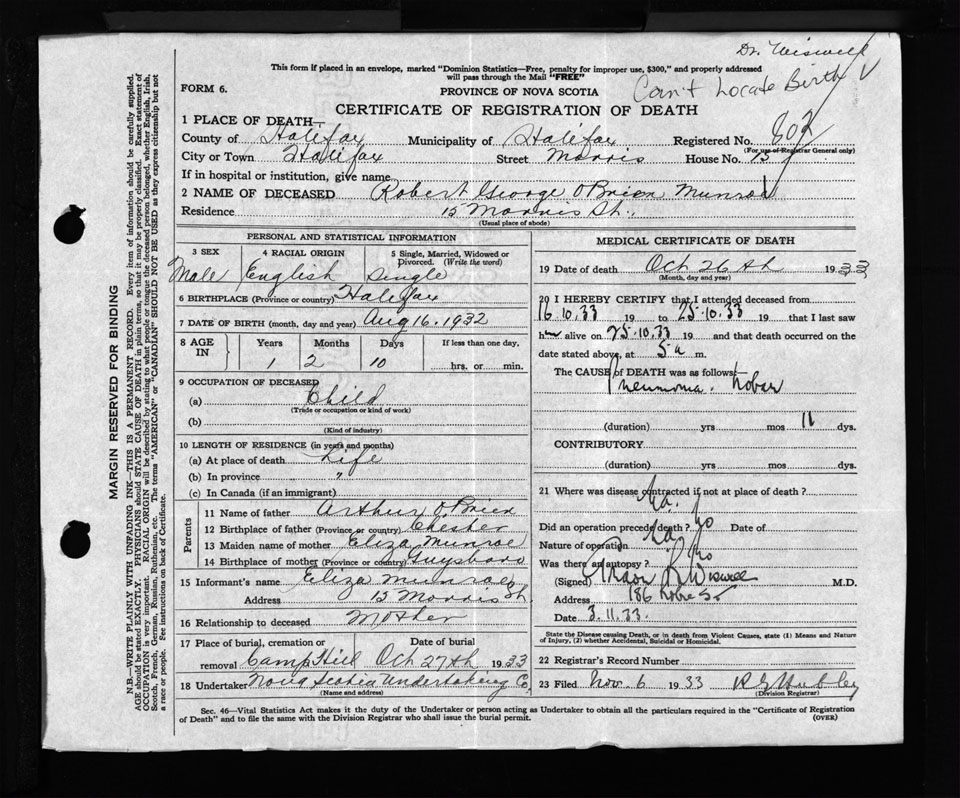 Dr. Wiswell
This form if placed in an envelope, marked "Dominion Statistics—Free, penalty for improper use, $300," and properly addressed
will pass through the Mail "FREE"
Can't Locate Birth
FORM 6.
PROVINCE OF NOVA SCOTIA
CERTIFICATE OF REGISTRATION OF DEATH
1 PLACE OF DEATH—
County of Halifax Municipality of Halifax Registered No. 803
(For use of Registrar General only)
City or Town Halifax Street Morris House No. 15
If in hospital or institution, give name
2 NAME OF DECEASED Robert George O'Brien Munroe
Residence 15 Morris St.,
(Usual place of abode)
PERSONAL AND STATISTICAL INFORMATION
3 SEX 4 RACIAL ORIGIN 5 Single, Married, Widowed or Divorced. (Write the word)
Male English Single
6 BIRTHPLACE (Province or country) Halifax
7 DATE OF BIRTH (month, day and year) Aug 16. 1932
8 AGE IN Years Months Days If less than one day,
1 2 10 hrs. or min.
9 OCCUPATION OF DECEASED
(a) Child
(Trade or occupation or kind of work)
(b)
(Kind of industry)
10 LENGTH OF RESIDENCE (in years and months)
(a) At place of death Life
(b) In province " "
(c) In Canada (if an immigrant)
Parents
11 Name of father Arthur O'Brien
12 Birthplace of father (Province or country) Chester
13 Maiden name of mother Eliza Munroe
14 Birthplace of mother (Province or country) Guysboro
15 Informant's name Eliza Munroe
Address 15 Morris St.
16 Relationship to deceased Mother
17 Place of burial, cremation or Date of burial
removal Camp Hill Oct 27th 1933
18 Undertaker Nova Scotia Undertaking Co.
(Name and address)
MEDICAL CERTIFICATE OF DEATH
19 Date of death Oct 26th 1933
(Month, day and year)
20 I HEREBY CERTIFY that I attended deceased from
16.10.33 19 to 25.10.33 19 that I last saw
h alive on 25.10.33 19 and that death occurred on the
date stated above, at 5 a m.
The CAUSE of DEATH was as follows:—
Pneumonia. Lobar
(duration) yrs mos 11 dys.
CONTRIBUTORY
(duration) yrs mos dys.
21 Where was disease contracted if not at place of death?
Did an operation precede death? No Date of
Nature of operation
Was there an autopsy? No
(Signed) Wiswell M.D.
Address 186 Robie St
Date 3.11.33.
State the Disease causing Death, or in death from Violent Causes, state (1) Means and Nature
of Injury, (2) whether Accidental, Suicidal or Homicidal.
22 Registrar's Record Number
23 Filed Nov. 6 1933
(Division Registrar)
Sec. 46—Vital Statistics Act makes it the duty of the Undertaker or person acting as Undertaker to obtain all the particulars required in the "Certificate of Registration
of Death" and to file the same with the Division Registrar who shall issue the burial permit.
(OVER)
MARGIN RESERVED FOR BINDING
N.B.—WRITE PLAINLY WITH UNFADING INK—THIS IS A PERMANENT RECORD. Every item of information should be carefully supplied.
AGE should be stated EXACTLY. PHYSICIANS should STATE CAUSE OF DEATH in plain terms, so that it may be properly classified. Exact statement of
OCCUPATION is very important. RACIAL ORIGIN will be described by stating to what people or tongue the deceased person belonged, whether English, Irish,
Scotch, French, German, Russian, Ruthenian, etc. The terms "AMERICAN" or "CANADIAN" SHOULD NOT BE USED as they express citizenship but not
a race or people. See instructions on back of Certificate.